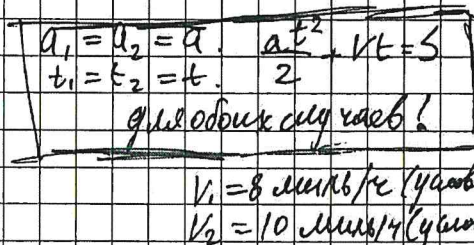 a₁ = a₂ = a. at²/2 + Vt = S
t₁ = t₂ = t.
для обоих случаев!
V₁ = 8 миль/ч (услов
V₂ = 10 миль/ч (усло